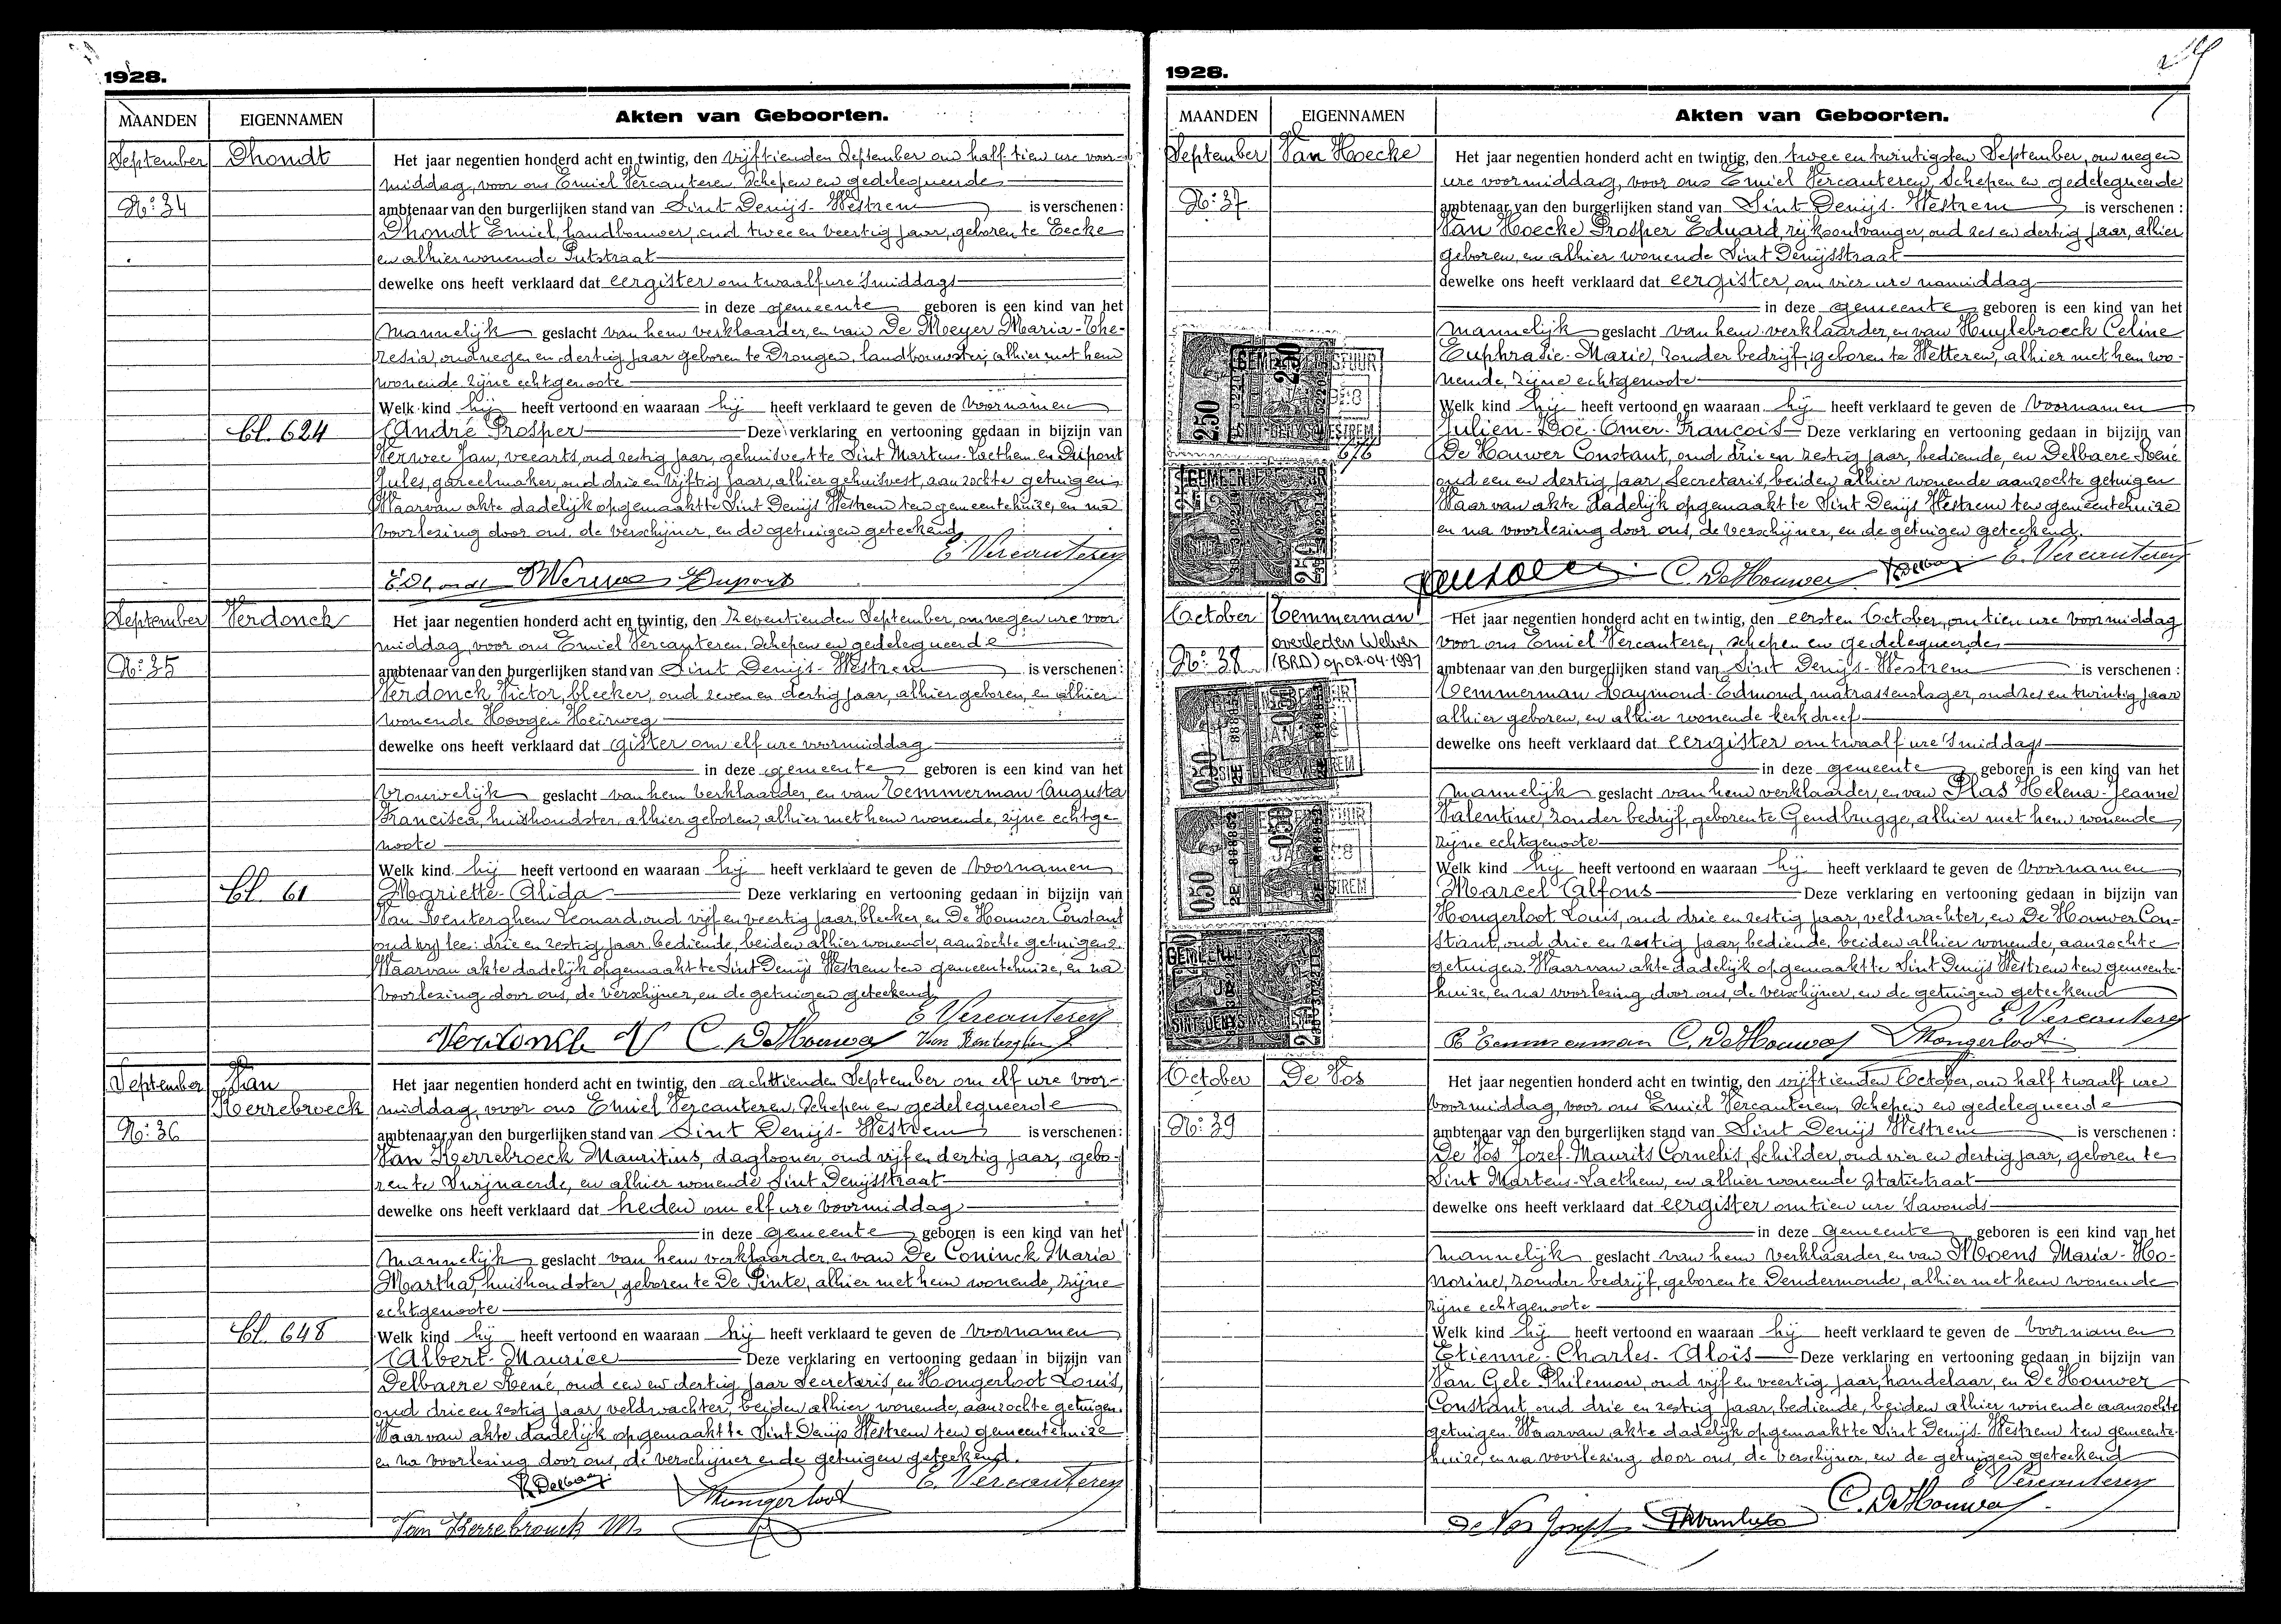 1928.
MAANDEN EIGENNAMEN Akten van Geboorten.
September Dhondt
Nr: 34
Het jaar negentien honderd acht en twintig, den vijftienden September om half tien ure voor-
middag, voor ons Emiel Vercauteren, Schepen en gedelegueerde
ambtenaar van den burgerlijken stand van Sint Denijs-Westrem is verschenen:
Dhondt Emiel, landbouwer, oud twee en veertig jaar, geboren te Eecke
en alhier wonende Putstraat
dewelke ons heeft verklaard dat eergister om twaalf ure 's middags
in deze gemeente geboren is een kind van het
Mannelijk geslacht van hem verklaarder, en van De Meyer Maria-The-
resia, oud negen en dertig jaar geboren te Drongen, landbouwster, alhier met hem
wonende zijne echtgenoote
Welk kind hij heeft vertoond en waaraan hij heeft verklaard te geven de voornamen
bl. 624
André Prosper Deze verklaring en vertooning gedaan in bijzijn van
Verwee Jan, veearts, oud zestig jaar, gehuisvest te Sint Martens-Laethem en Dupont
Jules, gareelmaker, oud drie en vijftig jaar, alhier gehuisvest, aanzochte getuigen
Waarvan akte dadelijk opgemaakt te Sint Denijs Westrem ten gemeentehuize, en na
voorlezing door ons, de verschijner, en de getuigen geteekend
E. Vercauteren
Dupont
September Verdonck
Nr: 35
Het jaar negentien honderd acht en twintig, den zeventienden September, om negen ure voor-
middag, voor ons Emiel Vercauteren, Schepen en gedelegueerde
ambtenaar van den burgerlijken stand van Sint Denijs-Westrem is verschenen:
Verdonck Victor, bleeker, oud zeven en dertig jaar, alhier geboren, en alhier
wonende Hoogen Heirweg
dewelke ons heeft verklaard dat gister om elf ure voormiddag
in deze gemeente geboren is een kind van het
Vrouwelijk geslacht van hem verklaarder, en van Temmerman Augusta
Francisca, huishoudster, alhier geboren, alhier met hem wonende, zijne echtge-
noote
Welk kind hij heeft vertoond en waaraan hij heeft verklaard te geven de voornamen
bl. 61
Mariette-Alida Deze verklaring en vertooning gedaan in bijzijn van
Van Renterghem Leonard, oud vijf en veertig jaar, bleeker, en De Houwer Constant
oud vijf lees: drie en zestig jaar, bediende, beiden alhier wonende, aanzochte getuigen.
Waarvan akte dadelijk opgemaakt te Sint Denijs Westrem ten gemeentehuize, en na
voorlezing door ons, de verschijner, en de getuigen geteekend
E Vercauteren
Verdonck V C. De Houwer Van Renterghem L
September Van
Kerrebroeck
Nr: 36
Het jaar negentien honderd acht en twintig, den achttienden September om elf ure voor-
middag, voor ons Emiel Vercauteren, Schepen en gedelegueerde
ambtenaar van den burgerlijken stand van Sint Denijs-Westrem is verschenen:
Van Kerrebroeck Mauritius, daglooner, oud vijf en dertig jaar, gebo-
ren te Swijnaerde, en alhier wonende Sint Denijsstraat
dewelke ons heeft verklaard dat heden om elf ure voormiddag
in deze gemeente geboren is een kind van het
Mannelijk geslacht van hem verklaarder, en van De Coninck Maria
Martha, huishoudster, geboren te De Pinte, alhier met hem wonende, zijne
echtgenoote
bl. 648
Welk kind hij heeft vertoond en waaraan hij heeft verklaard te geven de voornamen
Albert-Maurice Deze verklaring en vertooning gedaan in bijzijn van
Delbaere René, oud een en dertig jaar Secretaris, en Hongerloot Louis,
oud drie en zestig jaar veldwachter, beiden alhier wonende, aanzochte getuigen.
Waarvan akte dadelijk opgemaakt te Sint Denijs Westrem ten gemeentehuize
en na voorlezing door ons, de verschijner en de getuigen geteekend.
R Delbaere Hongerloot E. Vercauteren
Van Kerrebrouck M.
1928.
MAANDEN EIGENNAMEN Akten van Geboorten.
September Van Hoecke
Nr: 37
Het jaar negentien honderd acht en twintig, den twee en twintigsten September, om negen
ure voormiddag, voor ons Emiel Vercauteren, Schepen en gedelegueerde
ambtenaar van den burgerlijken stand van Sint Denijs-Westrem is verschenen:
Van Hoecke Prosper Eduard, rijksontvanger, oud zes en dertig jaar, alhier
geboren, en alhier wonende Sint Denijsstraat
dewelke ons heeft verklaard dat eergister, om vier ure namiddag
in deze gemeente geboren is een kind van het
Mannelijk geslacht van hem verklaarder, en van Huylebroeck Celine
Euphrasie-Marie, zonder bedrijf, geboren te Wetteren, alhier met hem wo-
nende, zijne echtgenoote
Welk kind hij heeft vertoond en waaraan hij heeft verklaard te geven de voornamen
Julien-Doë-Omer-François Deze verklaring en vertooning gedaan in bijzijn van
676
De Houwer Constant, oud drie en zestig jaar, bediende, en Delbaere René
oud een en dertig jaar, Secretaris, beiden alhier wonende aanzochte getuigen
Waarvan akte dadelijk opgemaakt te Sint Denijs Westrem ten gemeentehuize
en na voorlezing door ons, de verschijner, en de getuigen geteekend.
C. De Houwer R Delbaere E. Vercauteren
October Temmerman
overleden Welver
(BRD) op 02-04-1991
Nr: 38
Het jaar negentien honderd acht en twintig, den eersten October, om tien ure voormiddag
voor ons Emiel Vercauteren, schepen en gedelegueerde
ambtenaar van den burgerlijken stand van Sint Denijs-Westrem is verschenen:
Temmerman Raymond-Edmond, matrassenslager, oud zes en twintig jaar
alhier geboren, en alhier wonende kerkdreef
dewelke ons heeft verklaard dat eergister om twaalf ure 's middags
in deze gemeente geboren is een kind van het
Mannelijk geslacht van hem verklaarder, en van Plas Helena-Jeanne
Valentine, zonder bedrijf, geboren te Gendbrugge, alhier met hem wonende
zijne echtgenoote
Welk kind hij heeft vertoond en waaraan hij heeft verklaard te geven de voornamen
Marcel Alfons Deze verklaring en vertooning gedaan in bijzijn van
Hongerloot Louis, oud drie en zestig jaar, veldwachter, en De Houwer Con-
stant, oud drie en zestig jaar, bediende, beiden alhier wonende, aanzochte
getuigen. Waarvan akte dadelijk opgemaakt te Sint Denijs Westrem ten gemeente-
huize, en na voorlezing door ons, de verschijner, en de getuigen geteekend
E Vercauteren
R Temmerman C. De Houwer Hongerloot
October De Vos
Nr: 39
Het jaar negentien honderd acht en twintig, den vijftienden October, om half twaalf ure
voormiddag, voor ons Emiel Vercauteren, Schepen en gedelegueerde
ambtenaar van den burgerlijken stand van Sint Denijs Westrem is verschenen:
De Vos Jozef-Maurits Cornelis, Schilder, oud vier en dertig jaar, geboren te
Sint Martens-Laethem, en alhier wonende Statiestraat
dewelke ons heeft verklaard dat eergister om tien ure 's avonds
in deze Gemeente geboren is een kind van het
Mannelijk geslacht van hem verklaarder, en van Moens Maria-Ho-
norine, zonder bedrijf, geboren te Dendermonde, alhier met hem wonende
zijne echtgenoote
Welk kind hij heeft vertoond en waaraan hij heeft verklaard te geven de voornamen
Etienne-Charles-Aloïs Deze verklaring en vertooning gedaan in bijzijn van
Van Gele Philemon, oud vijf en veertig jaar, handelaar, en De Houwer
Constant, oud drie en zestig jaar, bediende, beiden alhier wonende aanzochte
getuigen. Waarvan akte dadelijk opgemaakt te Sint Denijs-Westrem ten gemeente-
huize, en na voorlezing door ons, de verschijner, en de getuigen geteekend
E Vercauteren
C. De Houwer
De Vos Joseph